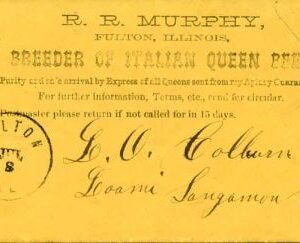 R. R. MURPHY,
FULTON, ILLINOIS,
BREEDER OF ITALIAN QUEEN BEE
Purity and safe arrival by Express of all Queens sent from my Apiary Guaran
For further information, Terms, etc., send for circular.
Postmaster please return if not called for in 15 days.
LTON
8
L. O. Colburn
Loami Sangamon